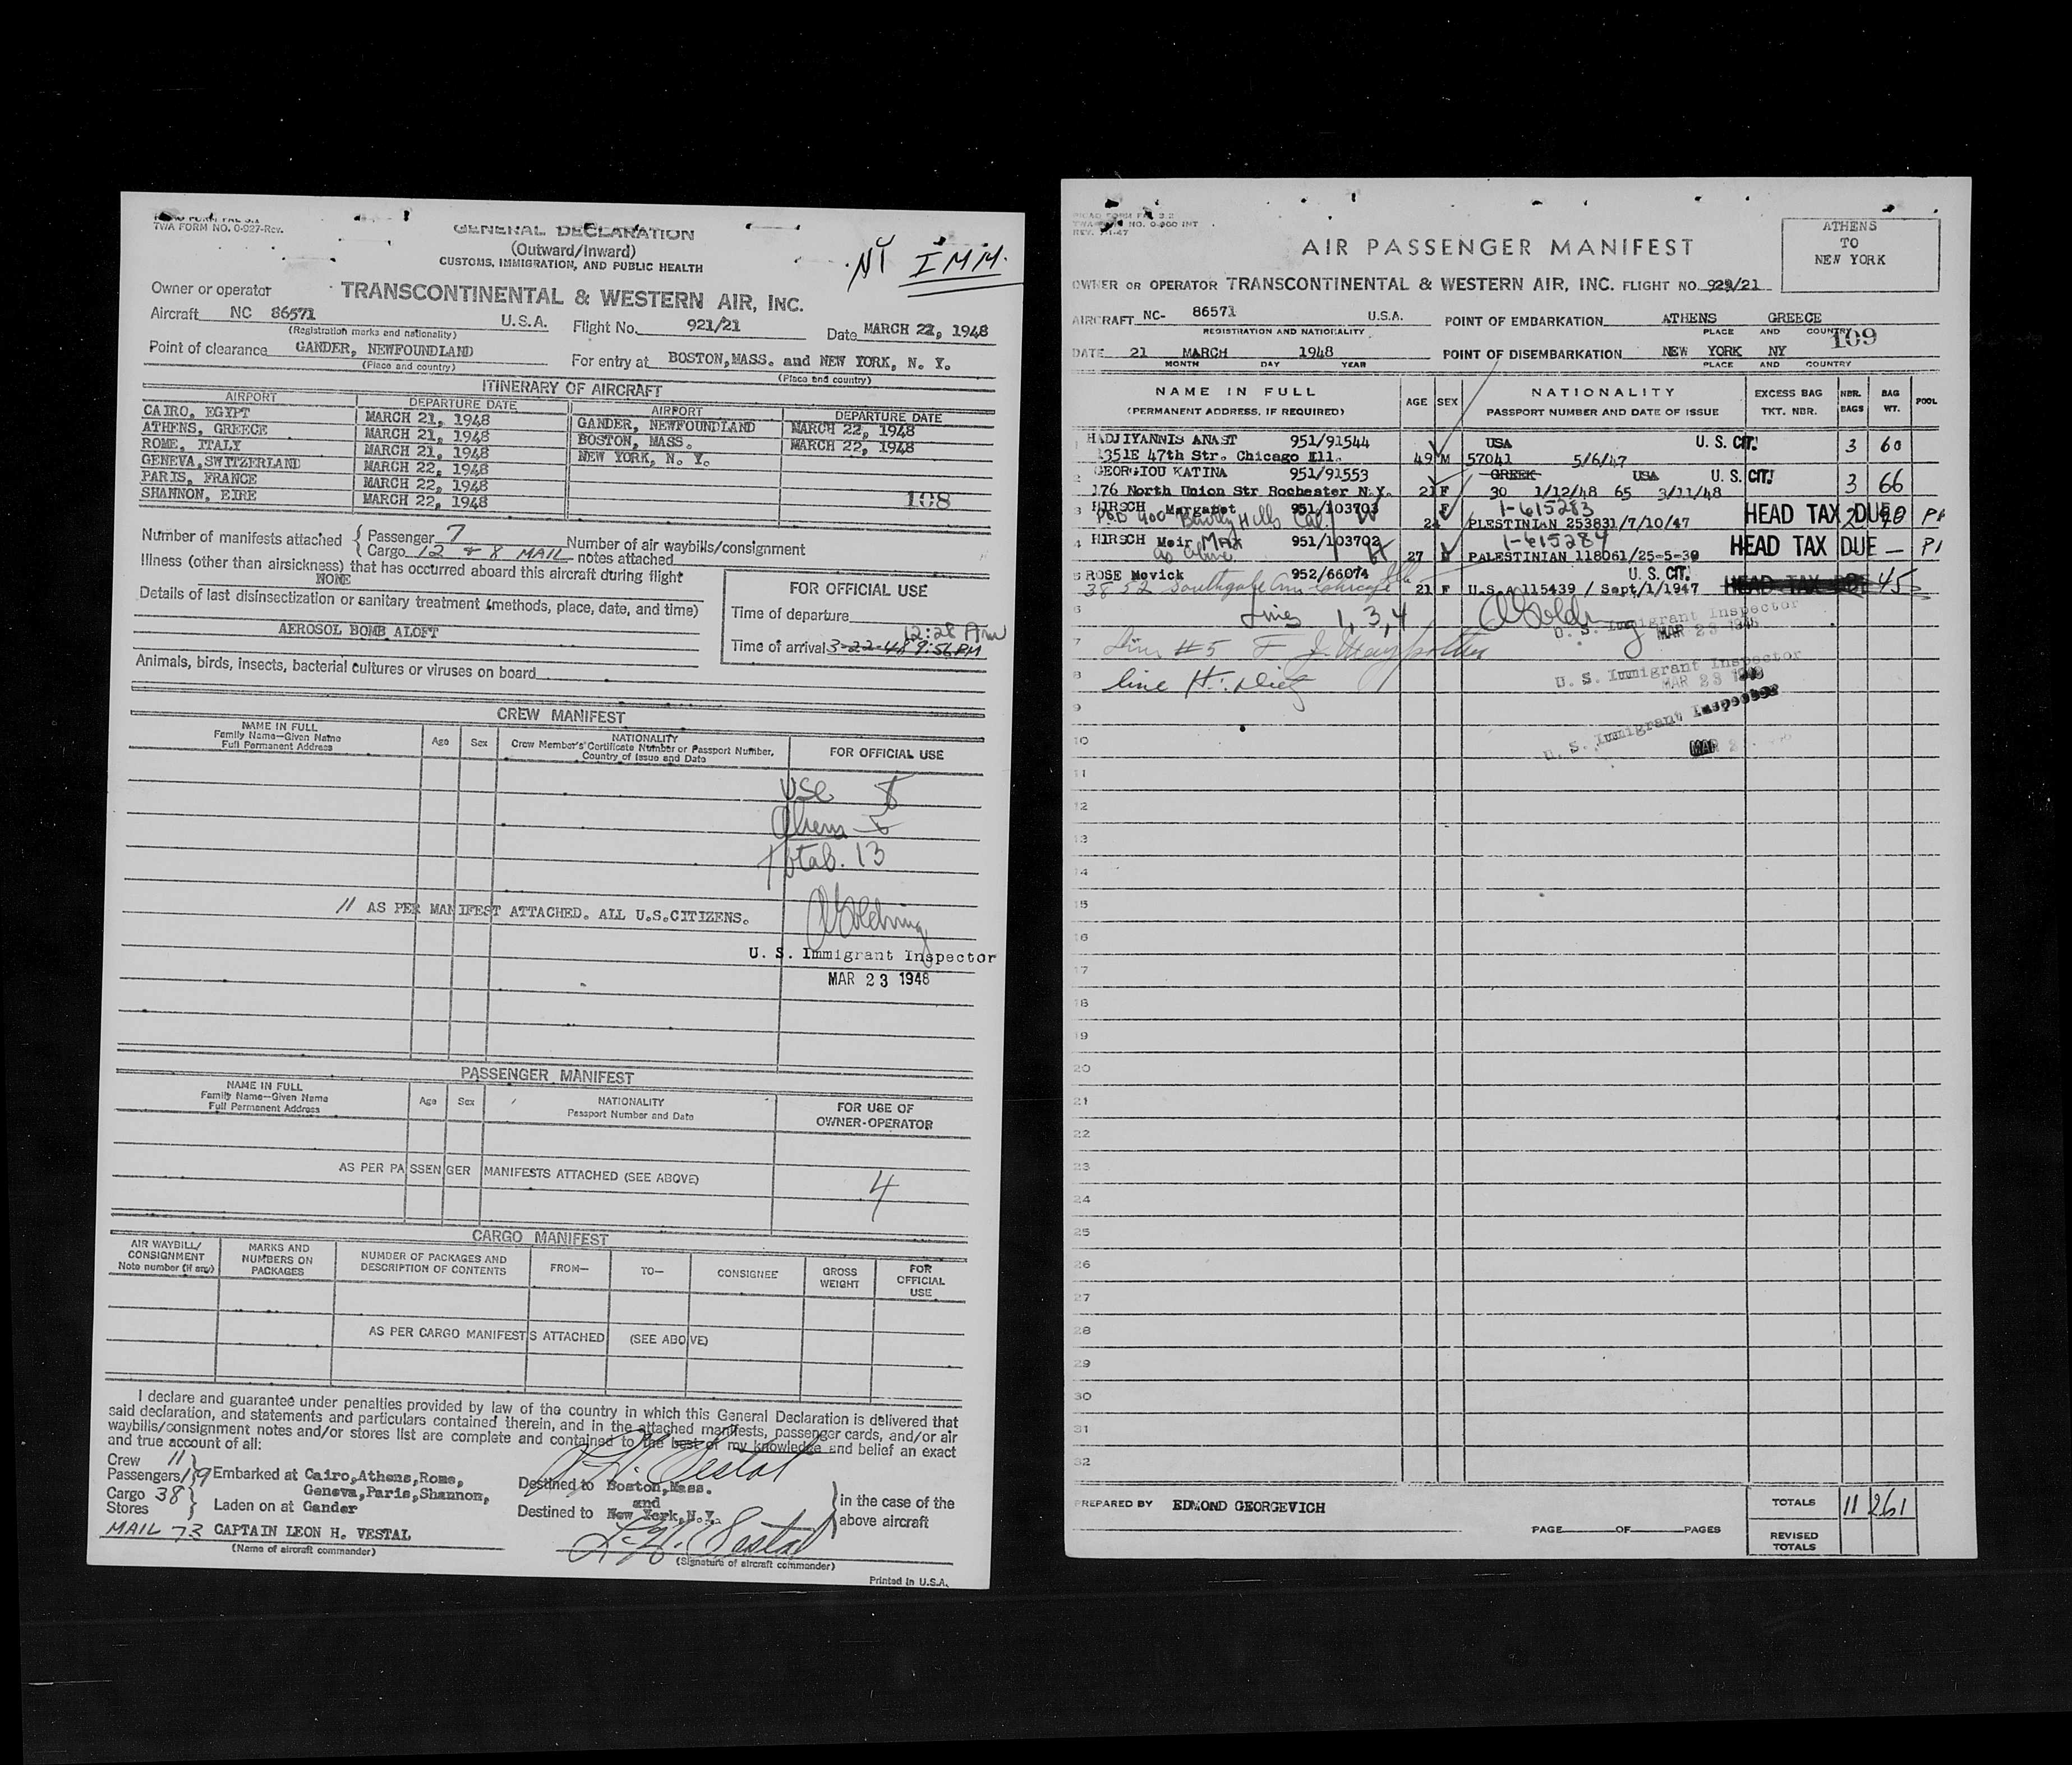 TWA FORM NO. 0-927-Rev.
GENERAL DECLARATION
(Outward/Inward)
CUSTOMS, IMMIGRATION, AND PUBLIC HEALTH
NY IMM.
Owner or operator TRANSCONTINENTAL & WESTERN AIR, INC.
Aircraft NC 86571 U.S.A. Flight No. 921/21 Date MARCH 22, 1948
(Registration marks and nationality)
Point of clearance GANDER, NEWFOUNDLAND For entry at BOSTON,MASS. and NEW YORK, N. Y.
(Place and country) (Place and country)
ITINERARY OF AIRCRAFT
AIRPORT DEPARTURE DATE AIRPORT DEPARTURE DATE
CAIRO, EGYPT MARCH 21, 1948 GANDER, NEWFOUNDLAND MARCH 22, 1948
ATHENS, GREECE MARCH 21, 1948 BOSTON, MASS. MARCH 22, 1948
ROME, ITALY MARCH 21, 1948 NEW YORK, N. Y.
GENEVA,SWITZERLAND MARCH 22, 1948
PARIS, FRANCE MARCH 22, 1948
SHANNON, EIRE MARCH 22, 1948 108
Number of manifests attached { Passenger 7 Number of air waybills/consignment
{ Cargo 12 & 8 MAIL notes attached
Illness (other than airsickness) that has occurred aboard this aircraft during flight
NONE
Details of last disinsectization or sanitary treatment (methods, place, date, and time)
AEROSOL BOMB ALOFT
Animals, birds, insects, bacterial cultures or viruses on board
FOR OFFICIAL USE
Time of departure
12:28 AM
Time of arrival 3-22-48 9:56 PM
CREW MANIFEST
NAME IN FULL
Family Name—Given Name
Full Permanent Address
Age Sex
NATIONALITY
Crew Member's Certificate Number or Passport Number,
Country of Issue and Date
FOR OFFICIAL USE
USC 8
Aliens 5
Total. 13
11 AS PER MANIFEST ATTACHED. ALL U.S.CITIZENS.
U. S. Immigrant Inspector
MAR 23 1948
PASSENGER MANIFEST
NAME IN FULL
Family Name—Given Name
Full Permanent Address
Age Sex
NATIONALITY
Passport Number and Date
FOR USE OF
OWNER-OPERATOR
AS PER PASSENGER MANIFESTS ATTACHED (SEE ABOVE) 4
CARGO MANIFEST
AIR WAYBILL/
CONSIGNMENT
Note number (if any)
MARKS AND
NUMBERS ON
PACKAGES
NUMBER OF PACKAGES AND
DESCRIPTION OF CONTENTS
FROM— TO— CONSIGNEE
GROSS
WEIGHT
FOR
OFFICIAL
USE
AS PER CARGO MANIFESTS ATTACHED (SEE ABOVE)
I declare and guarantee under penalties provided by law of the country in which this General Declaration is delivered that
said declaration, and statements and particulars contained therein, and in the attached manifests, passenger cards, and/or air
waybills/consignment notes and/or stores list are complete and contained to the best of my knowledge and belief an exact
and true account of all:
Crew 11
Passengers 19 Embarked at Cairo,Athens,Rome,
Geneva,Paris,Shannon,
Cargo 38
Stores Laden on at Gander
Destined to Boston,Mass.
and
Destined to New York,N.Y.
in the case of the
above aircraft
L. H. Vestal
MAIL 73 CAPTAIN LEON H. VESTAL
(Name of aircraft commander)
L. H. Vestal
(Signature of aircraft commander)
Printed in U.S.A.
PICAO FORM FAL 3.2
TWA FORM NO. 0-900 INT
REV. 7-1-47
AIR PASSENGER MANIFEST
ATHENS
TO
NEW YORK
OWNER OR OPERATOR TRANSCONTINENTAL & WESTERN AIR, INC. FLIGHT NO. 921/21
AIRCRAFT NC- 86571 U.S.A. POINT OF EMBARKATION ATHENS GREECE
REGISTRATION AND NATIONALITY PLACE AND COUNTRY
109
DATE 21 MARCH 1948 POINT OF DISEMBARKATION NEW YORK NY
MONTH DAY YEAR PLACE AND COUNTRY
NAME IN FULL
(PERMANENT ADDRESS, IF REQUIRED)
AGE SEX
NATIONALITY
PASSPORT NUMBER AND DATE OF ISSUE
EXCESS BAG
TKT. NBR.
NBR.
BAGS
BAG
WT.
POOL
1 HADJIYANNIS ANAST 951/91544 USA U. S. CIT. 3 60
1351E 47th Str. Chicago Ill. 49 M 57041 5/6/47
2 GEORGIOU KATINA 951/91553 GREEK USA U. S. CIT. 3 66
176 North Union Str Rochester N.Y. 21 F 30 1/12/48 65 3/11/48
3 HIRSCH Margaret 951/103703 F 1-615283 HEAD TAX DUE
POB 400 Beverly Hills Cal. W 24 PLESTINIAN 253831/7/10/47
4 HIRSCH Meir Max 951/103702 1-615284 HEAD TAX DUE —
as above 27 M PALESTINIAN 118061/25-5-39
5 ROSE Movick 952/66074 U. S. CIT. HEAD TAX DUE 45
3852 Southgate Ave Chicago Ill 21 F U.S.A 115439 / Sept/1/1947
6 Lines 1, 3, 4 U. S. Immigrant Inspector
MAR 23 1948
7 Line #5
U. S. Immigrant Inspector
MAR 23 1948
8 line
U. S. Immigrant Inspector
MAR
9
10
11
12
13
14
15
16
17
18
19
20
21
22
23
24
25
26
27
28
29
30
31
32
PREPARED BY EDMOND GEORGEVICH
PAGE OF PAGES
TOTALS 11 261
REVISED
TOTALS